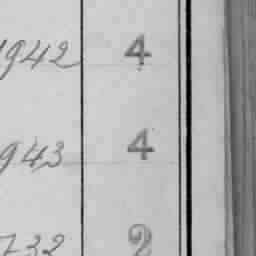 1942 4
943 4
732 2